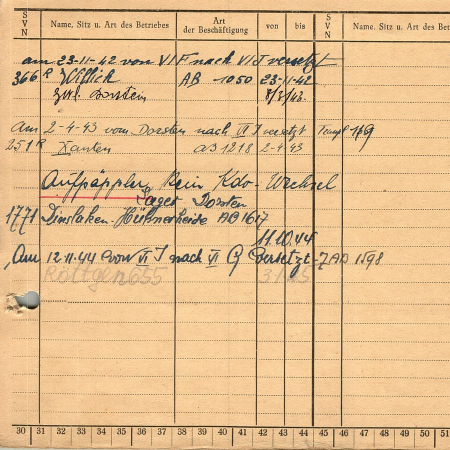 S V N Name, Sitz u. Art des Betriebes Art der Beschäftigung von bis S V N Name, Sitz u. Art
am 23-11-42 von VI F nach VI J versetzt
366 R Willich AB 1050 23-11-42
Dorsten 8/3/43.
Am 2-4-43 vom Dorsten nach VI J versetzt 169
251 R Xanten AB 1218 2-4-43
Aufpäppler, kein Kdo-Wechsel
Lager Dorsten
1771 Dinslaken-Hühnerheide AB 1617
11.10.44
Am 12-11-44 von VI J nach VI G versetzt - 7 AB 1598
Röttgen 655 31.5
30 31 32 33 34 35 36 37 38 39 40 41 42 43 44 45 46 47 48 49 50 51